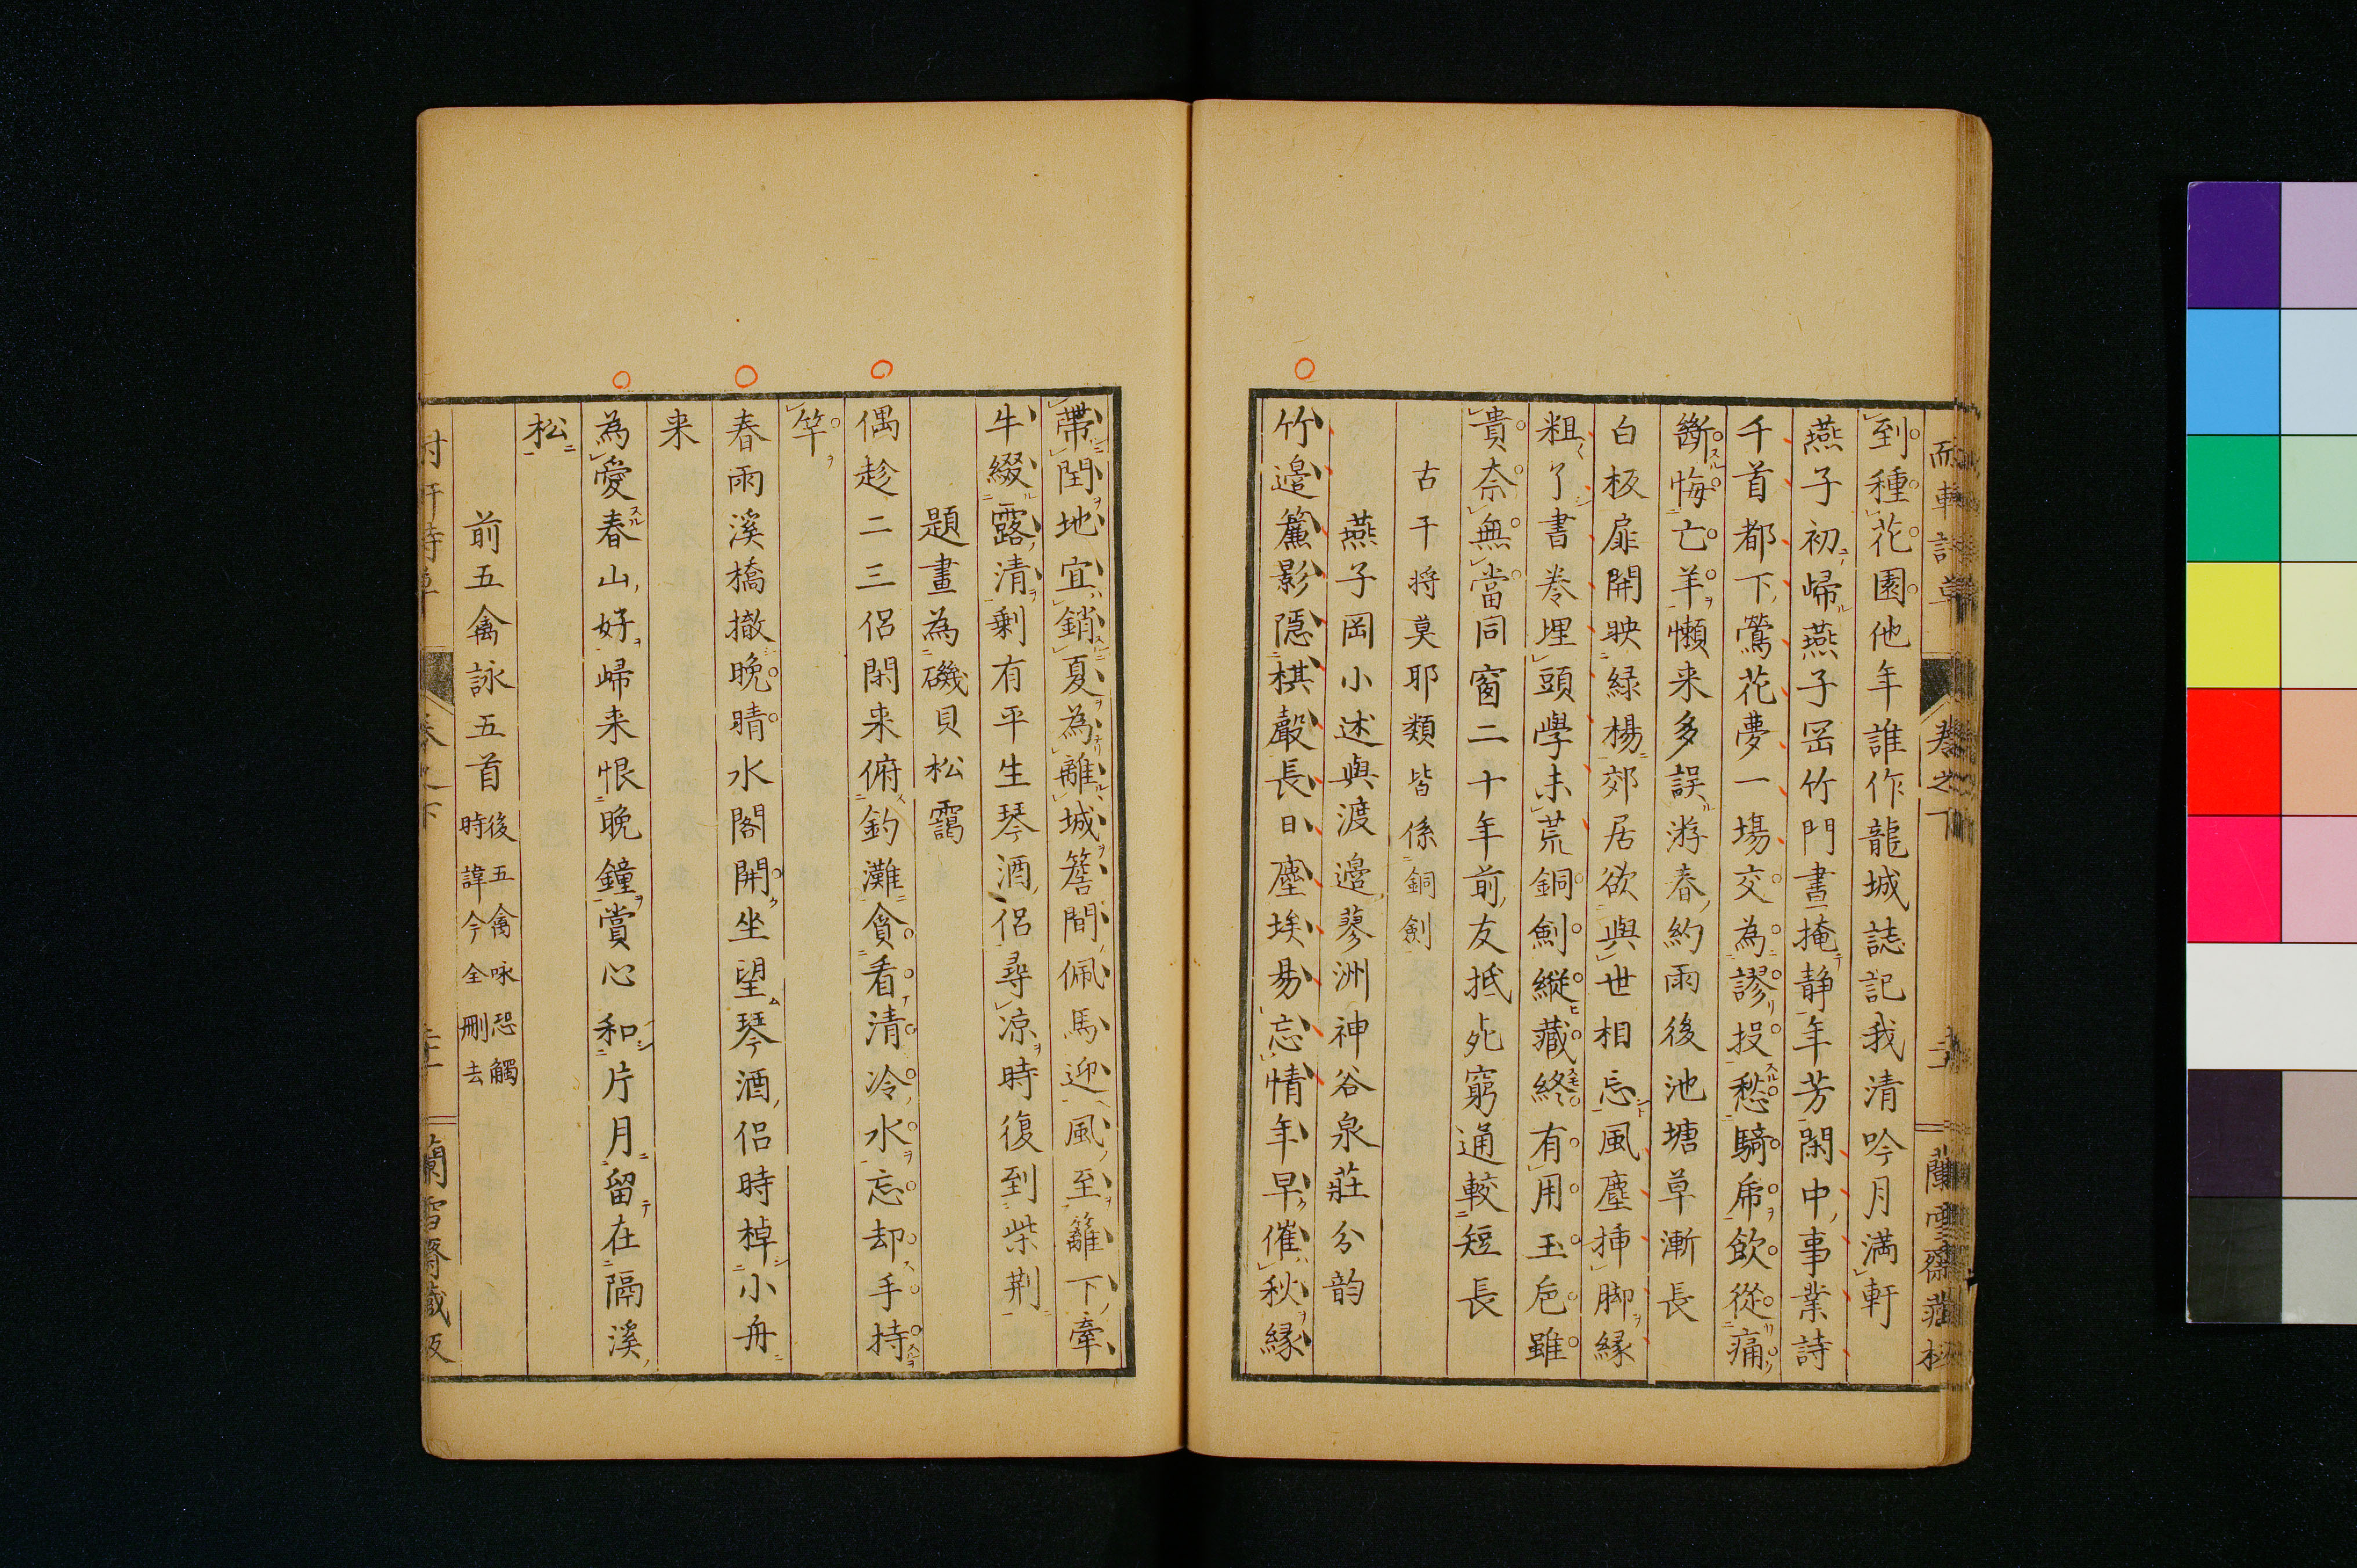 到種花園他年誰作龍城誌記我清吟月満軒
燕子初帰燕子岡竹門晝掩静年芳閑中事業詩
千首都下鶯花夢一場交為謬投愁騎席飲從痛
斷悔亡羊懶来多誤游春約雨後池塘草漸長
白板扉開映緑楊郊居欲與世相忘風塵挿脚縁
粗了書巻埋頭學未荒銅劍縦藏終有用玉卮雖
貴奈無當同窗二十年前友抵死窮通較短長
古干将莫耶類皆係銅劍
燕子岡小述與渡邉蓼洲神谷泉荘分韵
竹邉簾影隠棋聲長日塵埃易忘情年早催秋縁
帯閏地宜銷夏為離城簷間佩馬迎風至籬下牽
牛綴露清剰有平生琴酒侶尋涼時復到柴荆
題畫為磯貝松靄
偶趁二三侶閑来俯釣灘貪看清冷水忘却手持
竿
春雨溪橋撤晩晴水閣開坐望琴酒侶時棹小舟
来
為愛春山好帰来恨晩鐘賞心和片月留在隔溪
松
前五禽詠五首後五禽咏恐觸時諱今全刪去
巻之下
蘭雪齋藏